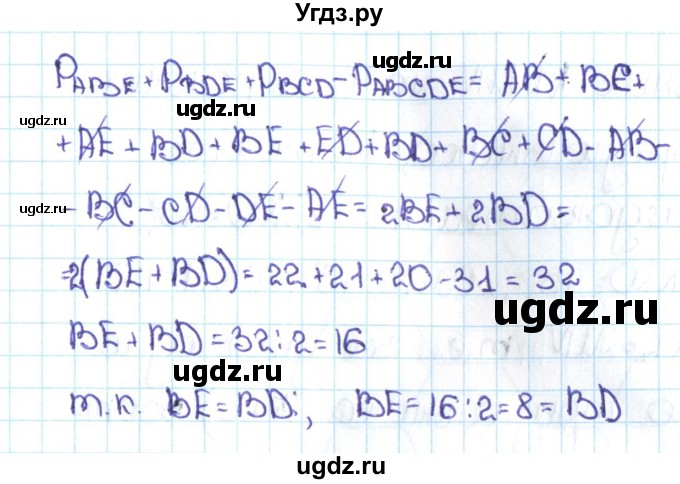 Угдз.ру
P_ABE + P_BDE + P_BCD - P_ABCDE = AB + BE +
+ AE + BD + BE + ED + BD + BC + CD - AB -
- BC - CD - DE - AE = 2BE + 2BD =
=2(BE + BD) = 22 + 21 + 20 - 31 = 32
BE + BD = 32 : 2 = 16
т.к. BE = BD:, BE = 16 : 2 = 8 = BD
ugdz.ru
ugdz.ru
ugdz.ru
ugdz.ru
ugdz.ru
ugdz.ru
ugdz.ru